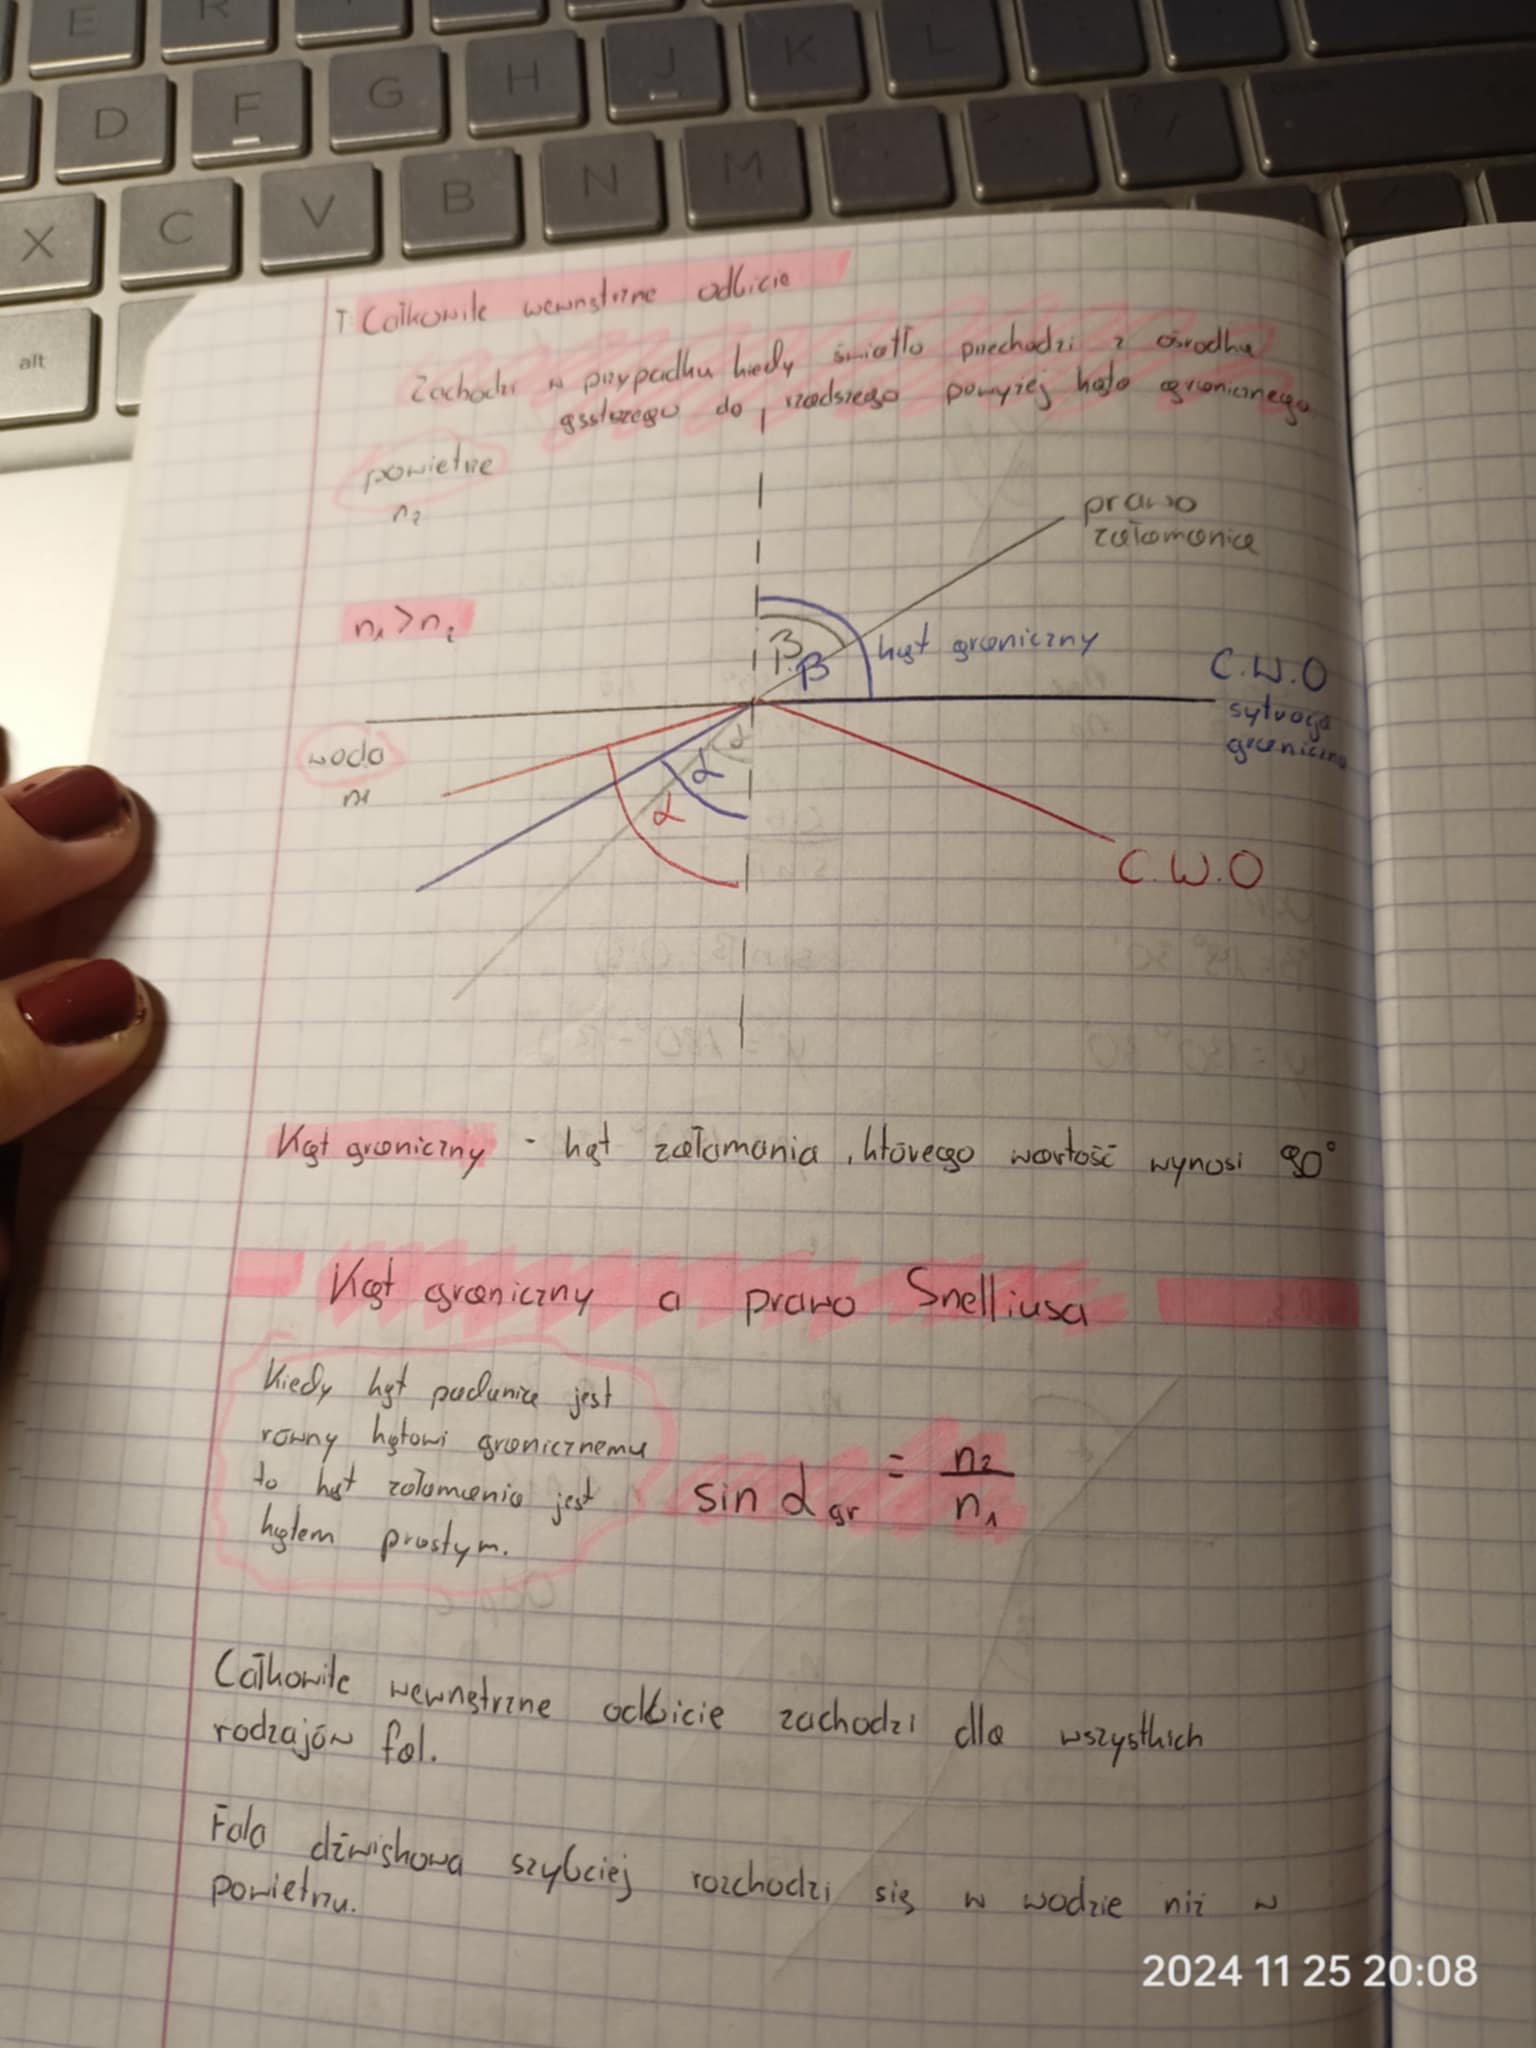 E R
D F G H J K L
X C V B N M
alt
T: Całkowite wewnętrzne odbicie
Zachodzi w przypadku kiedy światło przechodzi z ośrodka
gęstszego do rzadszego powyżej kąta granicznego
powietrze
n₂
prawo
załamania
n₁ > n₂
β
β
kąt graniczny
C.W.O
sytuacja
graniczna
woda
n₁
α
α
α
C.W.O
Kąt graniczny - kąt załamania, którego wartość wynosi 90°
Kąt graniczny a prawo Snelliusa
Kiedy kąt padania jest
równy kątowi granicznemu
to kąt załamania jest
kątem prostym.
sin α gr = n₂ / n₁
Całkowite wewnętrzne odbicie zachodzi dla wszystkich
rodzajów fal.
Fala dźwiękowa szybciej rozchodzi się w wodzie niż w
powietrzu.
2024 11 25 20:08